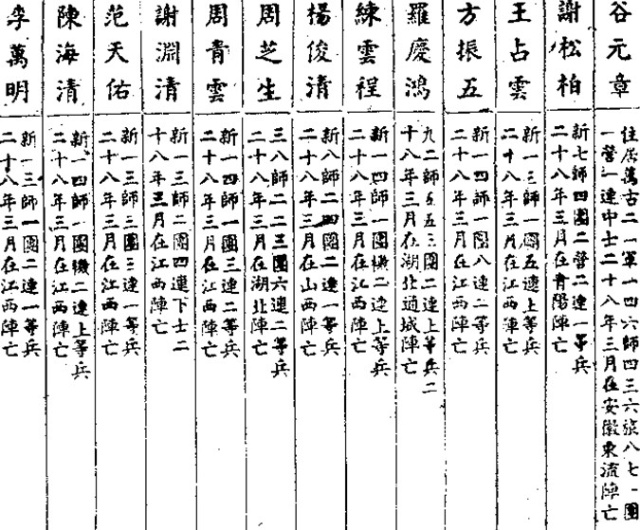 谷元章
住居萬古二一軍一四六師四三六旅八七一團
一營一連中士二十八年三月在安徽東流陣亡
謝松柏
新七師四團二營二連一等兵
二十八年三月在青陽陣亡
王占雲
新一三師一團五連上等兵
二十八年三月在江西陣亡
方振五
新一四師一團八連二等兵
二十八年三月在江西陣亡
羅慶鴻
九二師五五三團二連上等兵二
十八年三月在湖北通城陣亡
練雲程
新一四師一團機二連上等兵
二十八年三月在江西陣亡
楊俊清
新八師二四團二連一等兵
二十八年三月在山西陣亡
周芝生
三八師二二三團六連二等兵
二十八年三月在湖北陣亡
周青雲
新一四師一團三連二等兵
二十八年三月在江西陣亡
謝淵清
新一三師二團四連下士二
十八年三月在江西陣亡
范天佑
新一三師三團三連一等兵
二十八年三月在江西陣亡
陳海清
新一四師一團機二連上等兵
二十八年三月在江西陣亡
李萬明
新一三師一團二連一等兵
二十八年三月在江西陣亡